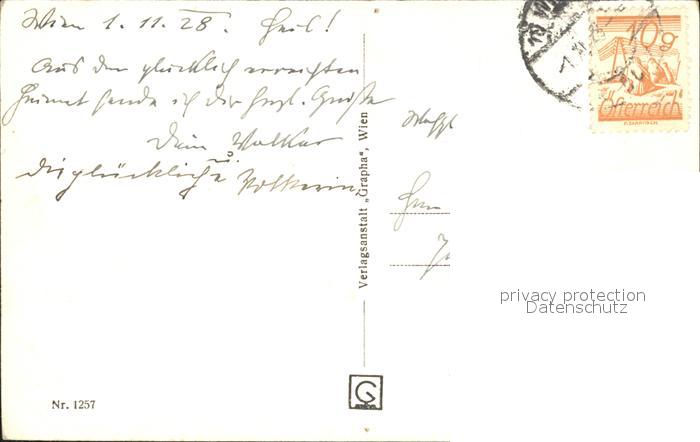 Wien 1.11.28. Heil!
Aus der glücklich erreichten
Heimat sende ich dir herzl. Grüße
Dein Volker
u.
die glückliche Volkerin.
Verlagsanstalt „Grapha“, Wien
Nr. 1257
G
10g
Österreich
privacy protection
Datenschutz